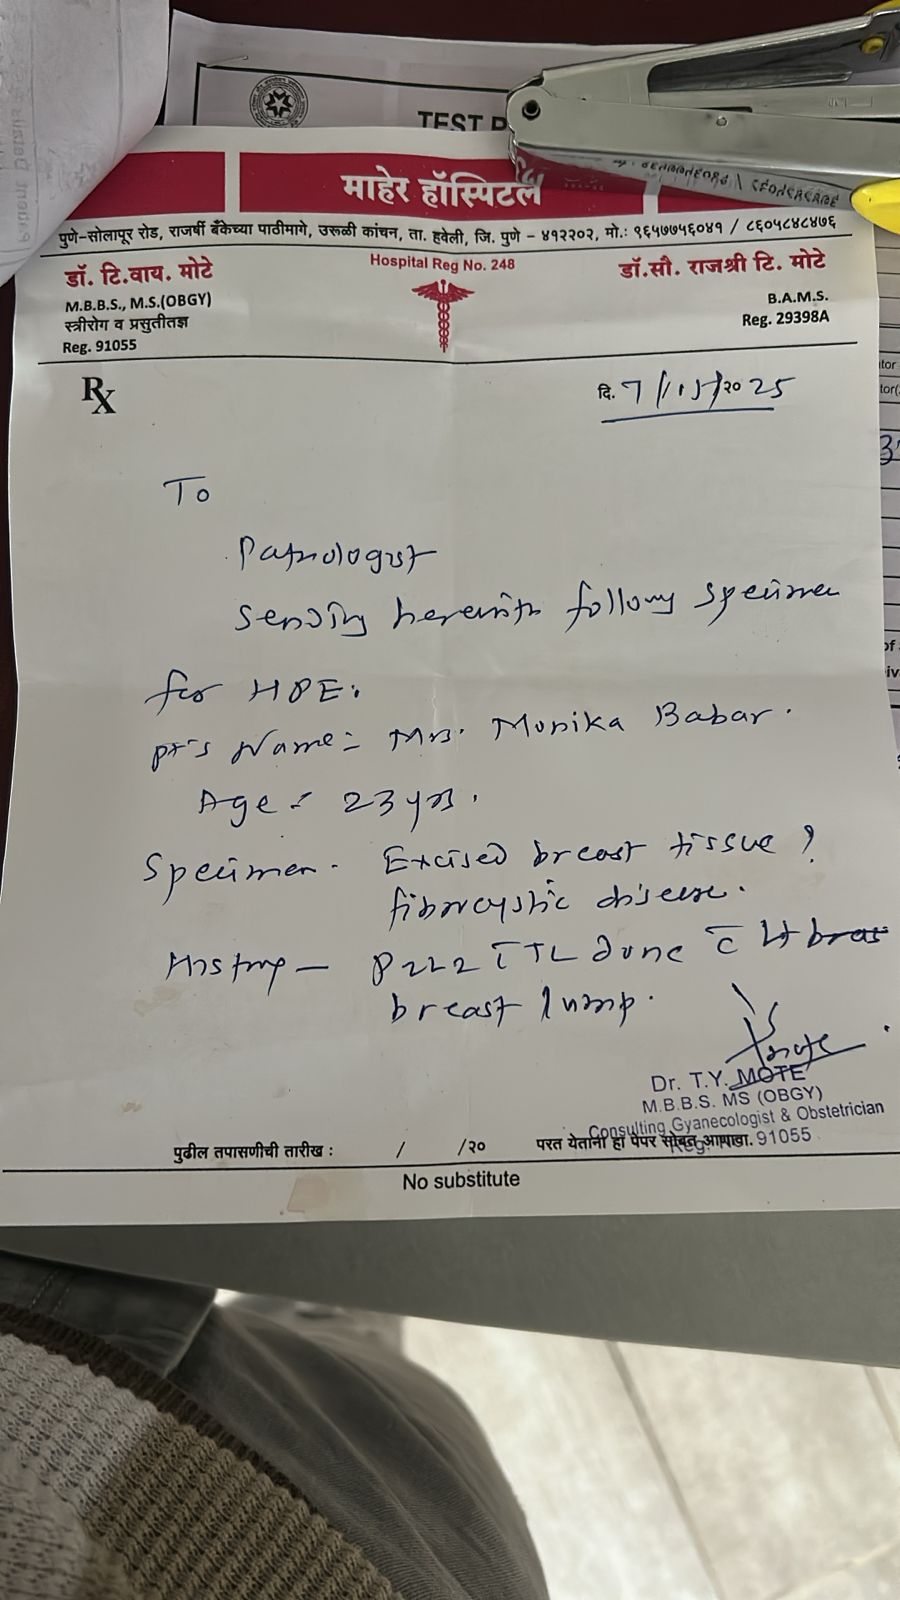 TEST
माहेर हॉस्पिटल
पुणे-सोलापूर रोड, राजर्षी बँकेच्या पाठीमागे, उरूळी कांचन, ता. हवेली, जि. पुणे - ४१२२०२, मो.: ९६५७७५६०४१ / ८६०५८४८४७६
डॉ. टि.वाय. मोटे
Hospital Reg No. 248
डॉ.सौ. राजश्री टि. मोटे
M.B.B.S., M.S.(OBGY)
B.A.M.S.
स्त्रीरोग व प्रसुतीतज्ञ
Reg. 29398A
Reg. 91055
Rx
दि. 7/11/२०25
To
Pathologist
Sending herewith following specimen
for HPE.
Pt's Name = Mrs. Monika Babar.
Age = 23 yrs.
Specimen - Excised breast tissue ?
fibrocystic disease.
History - P2L2 c̄ TL done c̄ Lt
breast lump.
Dr. T.Y. MOTE
M.B.B.S. MS (OBGY)
Consulting Gyanecologist & Obstetrician
91055
पुढील तपासणीची तारीख : / /२० परत येतांना हा पेपर सोबत आणावा.
No substitute